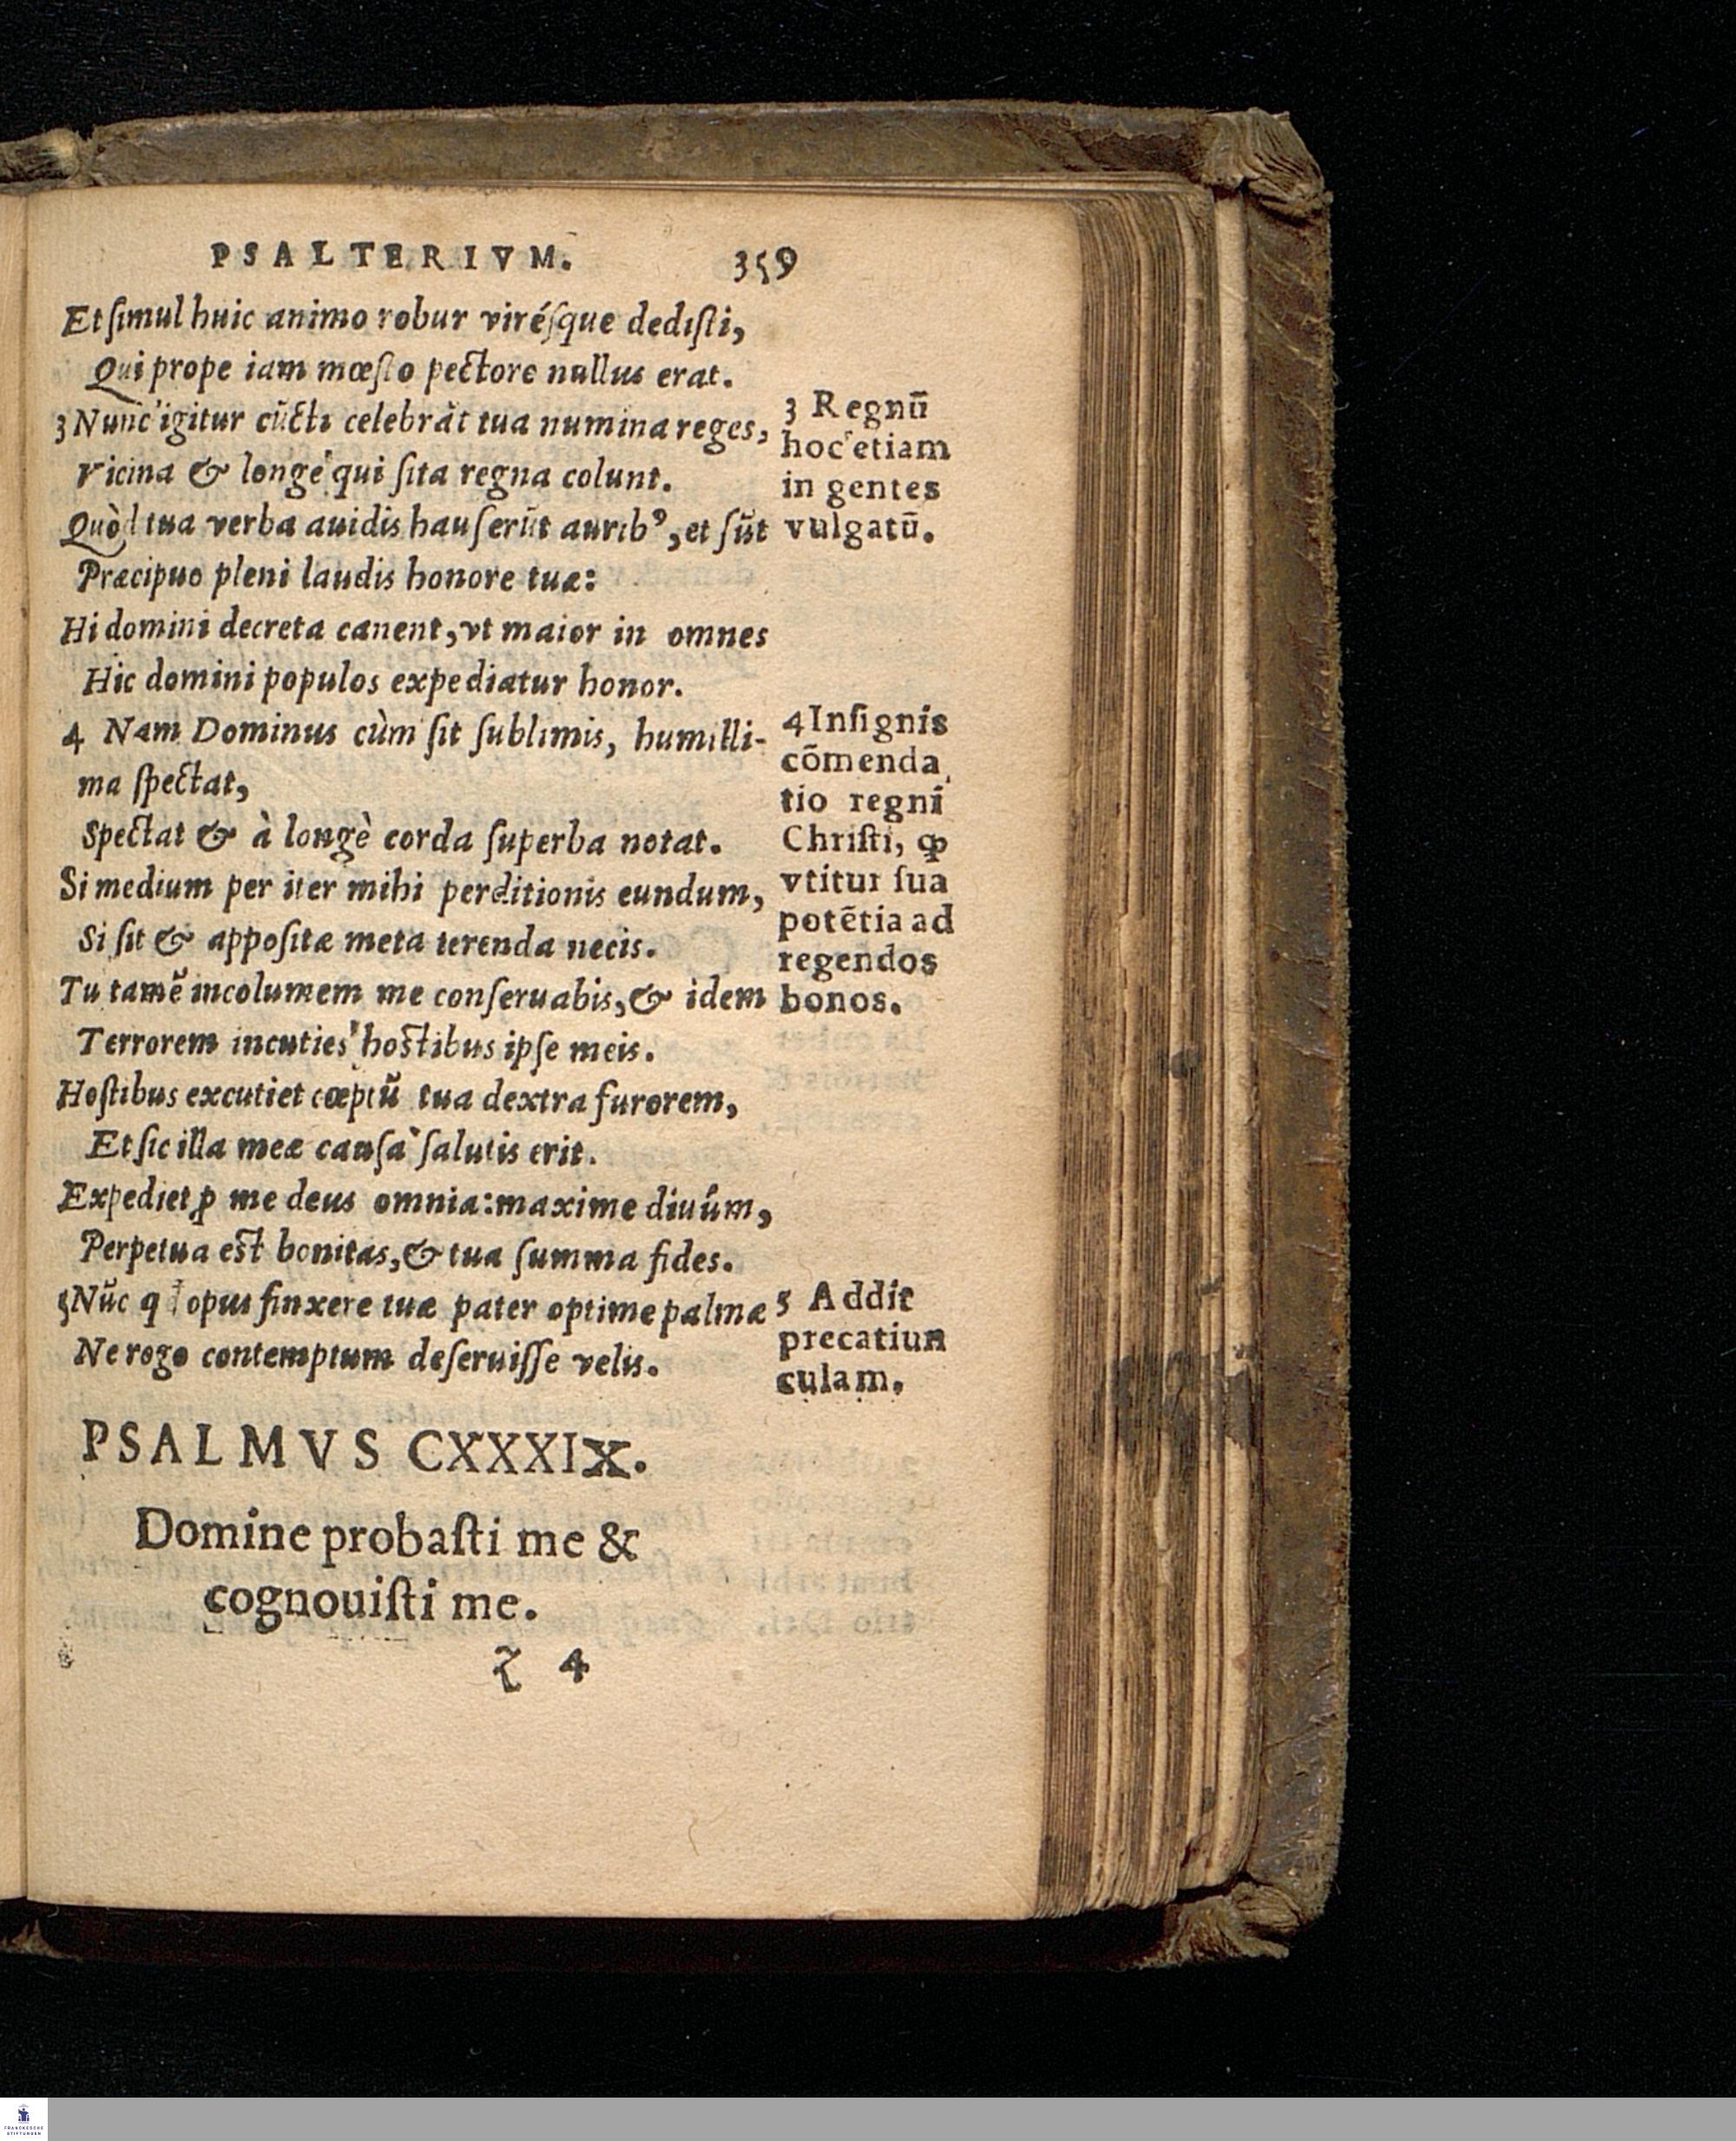 PSALTERIVM. 359
Et ſimul huic animo robur viréſque dediſti,
Qui prope iam mœſto pectore nullus erat.
3 Nunc igitur cūcti celebrāt tua numina reges,
Vicina & longè qui ſita regna colunt.
Quòd tua verba auidis hauſerūt aurib⁹, et ſūt
Præcipuo pleni laudis honore tuæ:
Hi domini decreta canent, vt maior in omnes
Hic domini populos expediatur honor.
4 Nam Dominus cùm ſit ſublimis, humilli-
ma ſpectat,
Spectat & à longè corda ſuperba notat.
Si medium per iter mihi perditionis eundum,
Si ſit & appoſitæ meta terenda necis.
Tu tamē incolumem me conſeruabis, & idem
Terrorem incuties hoſtibus ipſe meis.
Hoſtibus excutiet cœptū tua dextra furorem,
Et ſic illa meæ cauſa ſalutis erit.
Expediet ꝓ me deus omnia: maxime diuúm,
Perpetua eſt bonitas, & tua ſumma fides.
5 Nūc opus finxere tuæ pater optime palmæ
Ne rogo contemptum deſeruiſſe velis.
3 Regnū
hoc etiam
in gentes
vulgatū.
4 Inſignis
cōmenda
tio regni
Chriſti, ꝙ
vtitur ſua
potētia ad
regendos
bonos.
5 Addit
precatiun
culam.
PSALMVS CXXXIX.
Domine probaſti me &
cognouiſti me.
4
FRANCKESCHE
STIFTUNGEN